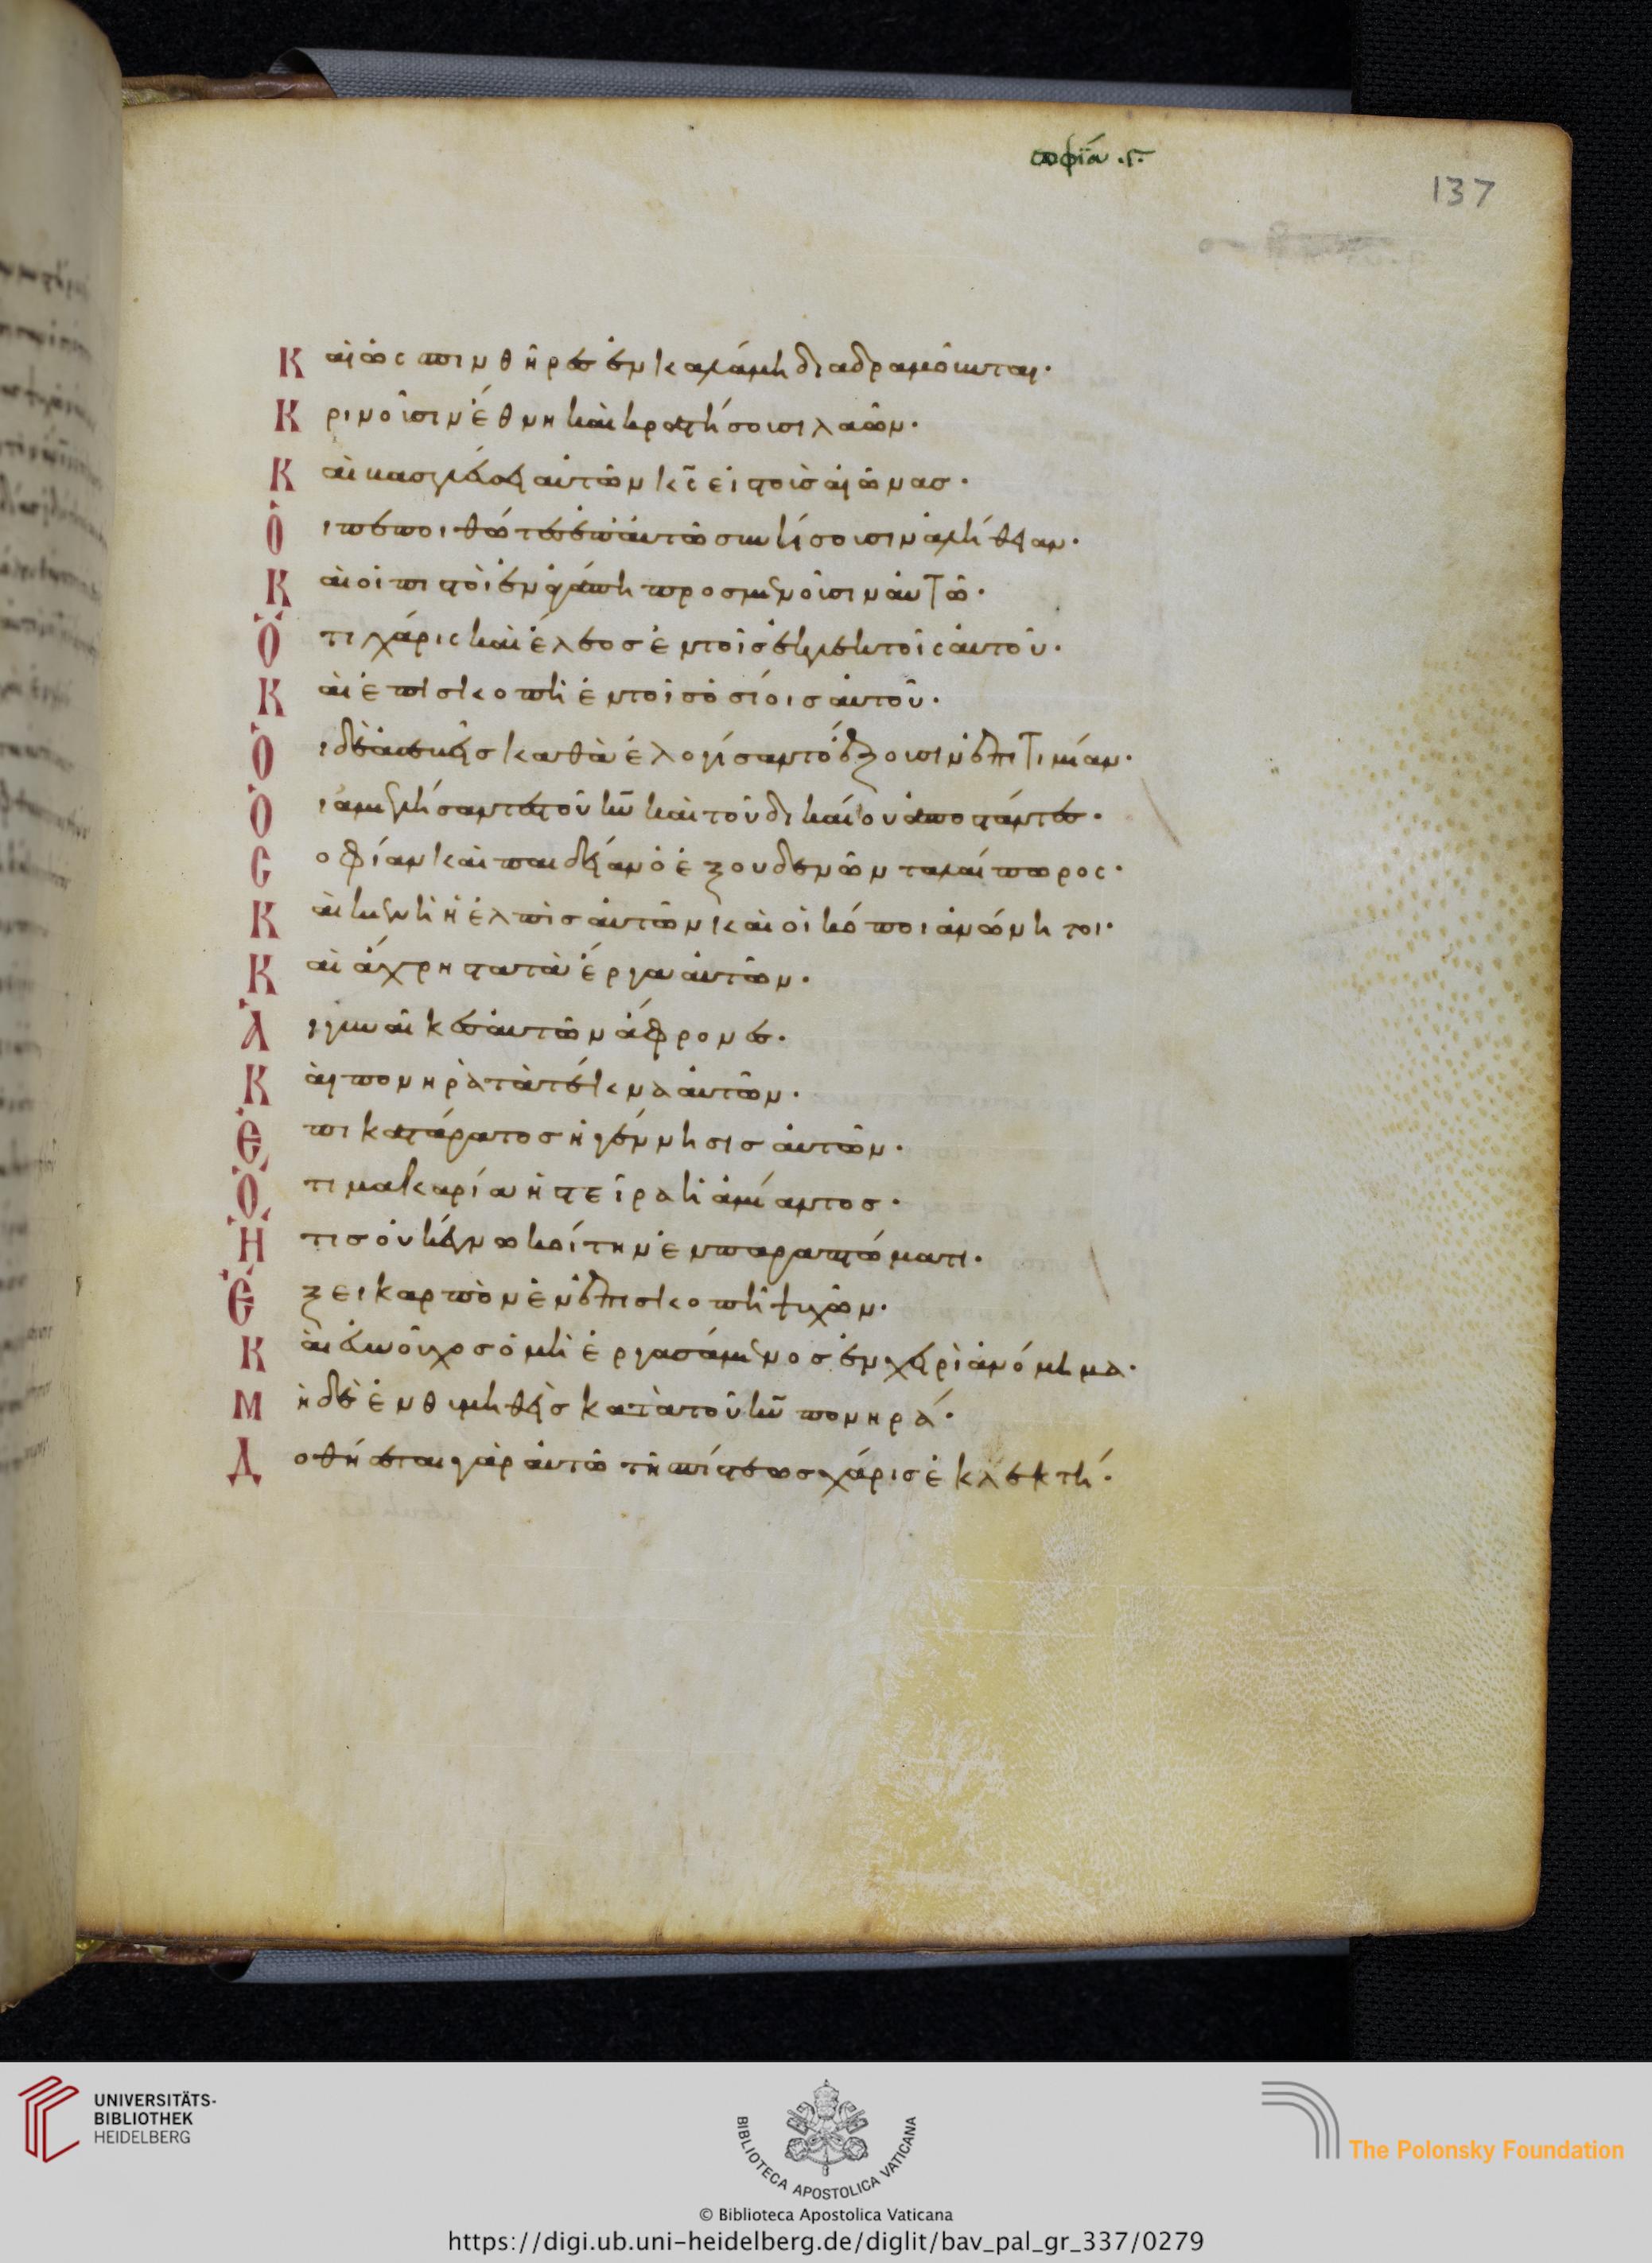 σοφία .γ.
137
Καὶ ὡς σπινθῆρες ἐν καλάμη διαδραμοῦνται·
Κρινοῦσιν ἔθνη καὶ κρατήσουσι λαῶν·
Καὶ βασιλεύσει αὐτῶν κ̅ς̅ εἰς τοὺς αἰῶνας·
Ὁι πεποιθότες ἐπ' αὐτῶ συνήσουσιν ἀλήθειαν·
Καὶ οἱ πιστοὶ ἐν ἀγάπη προσμενοῦσιν αὐτῶ·
Ὅτι χάρις καὶ ἔλεος ἐν τοῖς ἐκλεκτοῖς αὐτοῦ·
Καὶ ἐπισκοπὴ ἐν τοῖς ὁσίοις αὐτοῦ·
Ὁι δὲ ἀσεβεῖς καθὰ ἐλογίσαντο ἕξουσιν ἐπιτιμίαν·
Ὁι ἀμελήσαντες τοῦ κ̅υ̅ καὶ τοῦ δικαίου ἀποστάντες·
Σοφίαν καὶ παιδείαν ὁ ἐξουδενῶν ταλαίπωρος·
Καὶ κενὴ ἡ ἐλπὶς αὐτῶν καὶ οἱ κόποι ἀνώνητοι·
Καὶ ἄχρηστα τὰ ἔργα αὐτῶν·
Ἁι γυναῖκες αὐτῶν ἄφρονες·
Καὶ πονηρὰ τὰ τέκνα αὐτῶν·
Ἐπικατάρατος ἡ γέννησις αὐτῶν·
Ὅτι μακαρία ἡ στεῖρα ἡ ἀμίαντος·
Ἥτις οὐκ ἔγνω κοίτην ἐν παραπτώματι·
Ἕξει καρπὸν ἐν ἐπισκοπῆ ψυχῶν·
Καὶ εὐνοῦχος ὁ μὴ ἐργασάμενος ἐν χειρὶ ἀνόμημα·
Μηδὲ ἐνθυμηθεὶς κατὰ τοῦ κ̅υ̅ πονηρά·
Δοθήσεται γὰρ αὐτῶ τῆς πίστεως χάρις ἐκλεκτή·
UNIVERSITÄTS-
BIBLIOTHEK
HEIDELBERG
BIBLIOTECA APOSTOLICA VATICANA
The Polonsky Foundation
© Biblioteca Apostolica Vaticana
https://digi.ub.uni-heidelberg.de/diglit/bav_pal_gr_337/0279